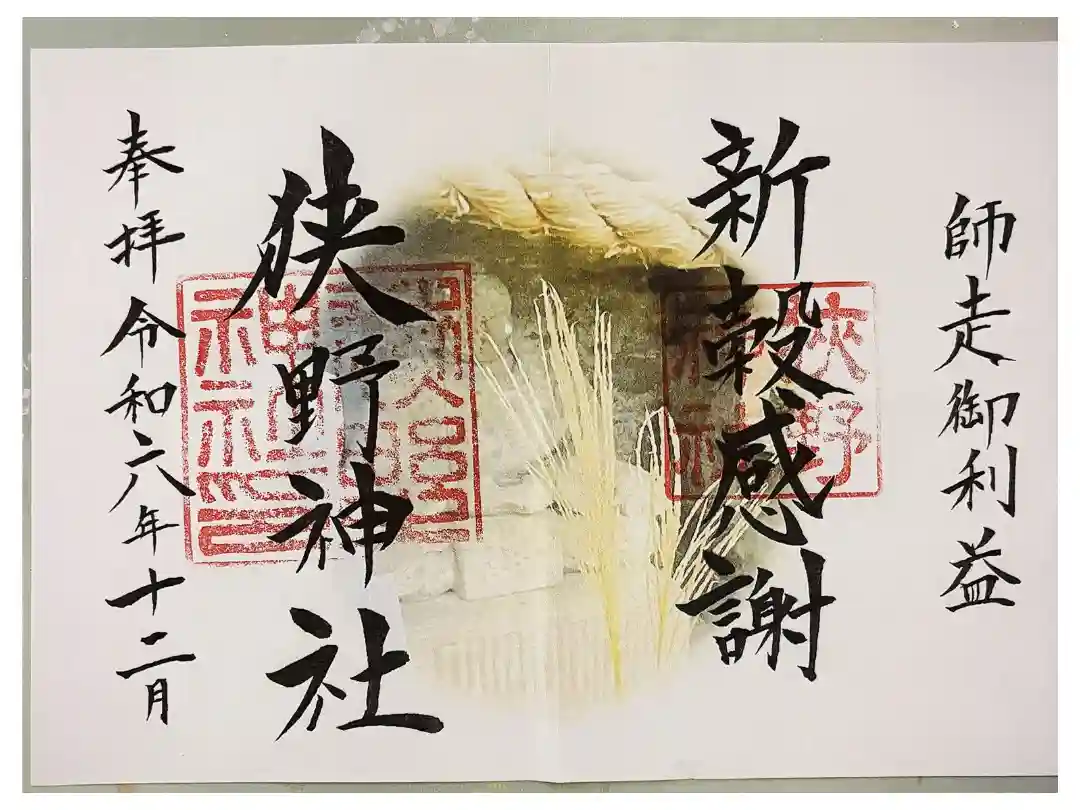 師走御利益
新穀感謝
狭野
神社
狭野神社
奉拝令和六年十二月